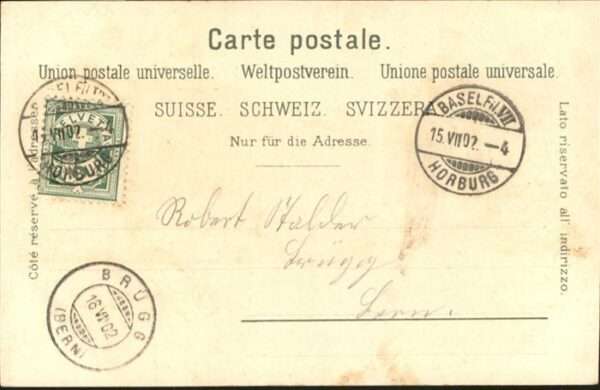 Carte postale.
Union postale universelle. Weltpostverein. Unione postale universale.
SUISSE. SCHWEIZ. SVIZZERA
Nur für die Adresse.
Côté réservé à l'adresse
Lato riservato all' indirizzo.
HELVETIA
15.VII 02
HORBURG
BASEL Fil. VII
15.VII 02. – 4
HORBURG
Robert Stalder
Brügg
Bern.
BRÜGG
16 VII 02
(BERN)